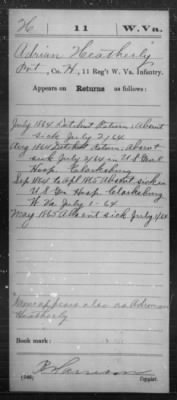 H 11 W. Va.
Adrian Heatherly
Pvt, Co. H, 11 Reg't W. Va. Infantry.
Appears on Returns as follows:
July 1864 Detchmt Return. Absent
sick July 2/64
Aug 1864 Detchmt Return. Absent
sick July 2/64 in U.S. Genl
Hosp. Clarksburg
Sep 1864 to Apl 1865 Absent sick in
U.S. Gen Hosp Clarksburg
W. Va July 1-64
May 1865 Absent sick July 1/64
Name appears also as
Heatherly
Book mark:
(546) Copyist.